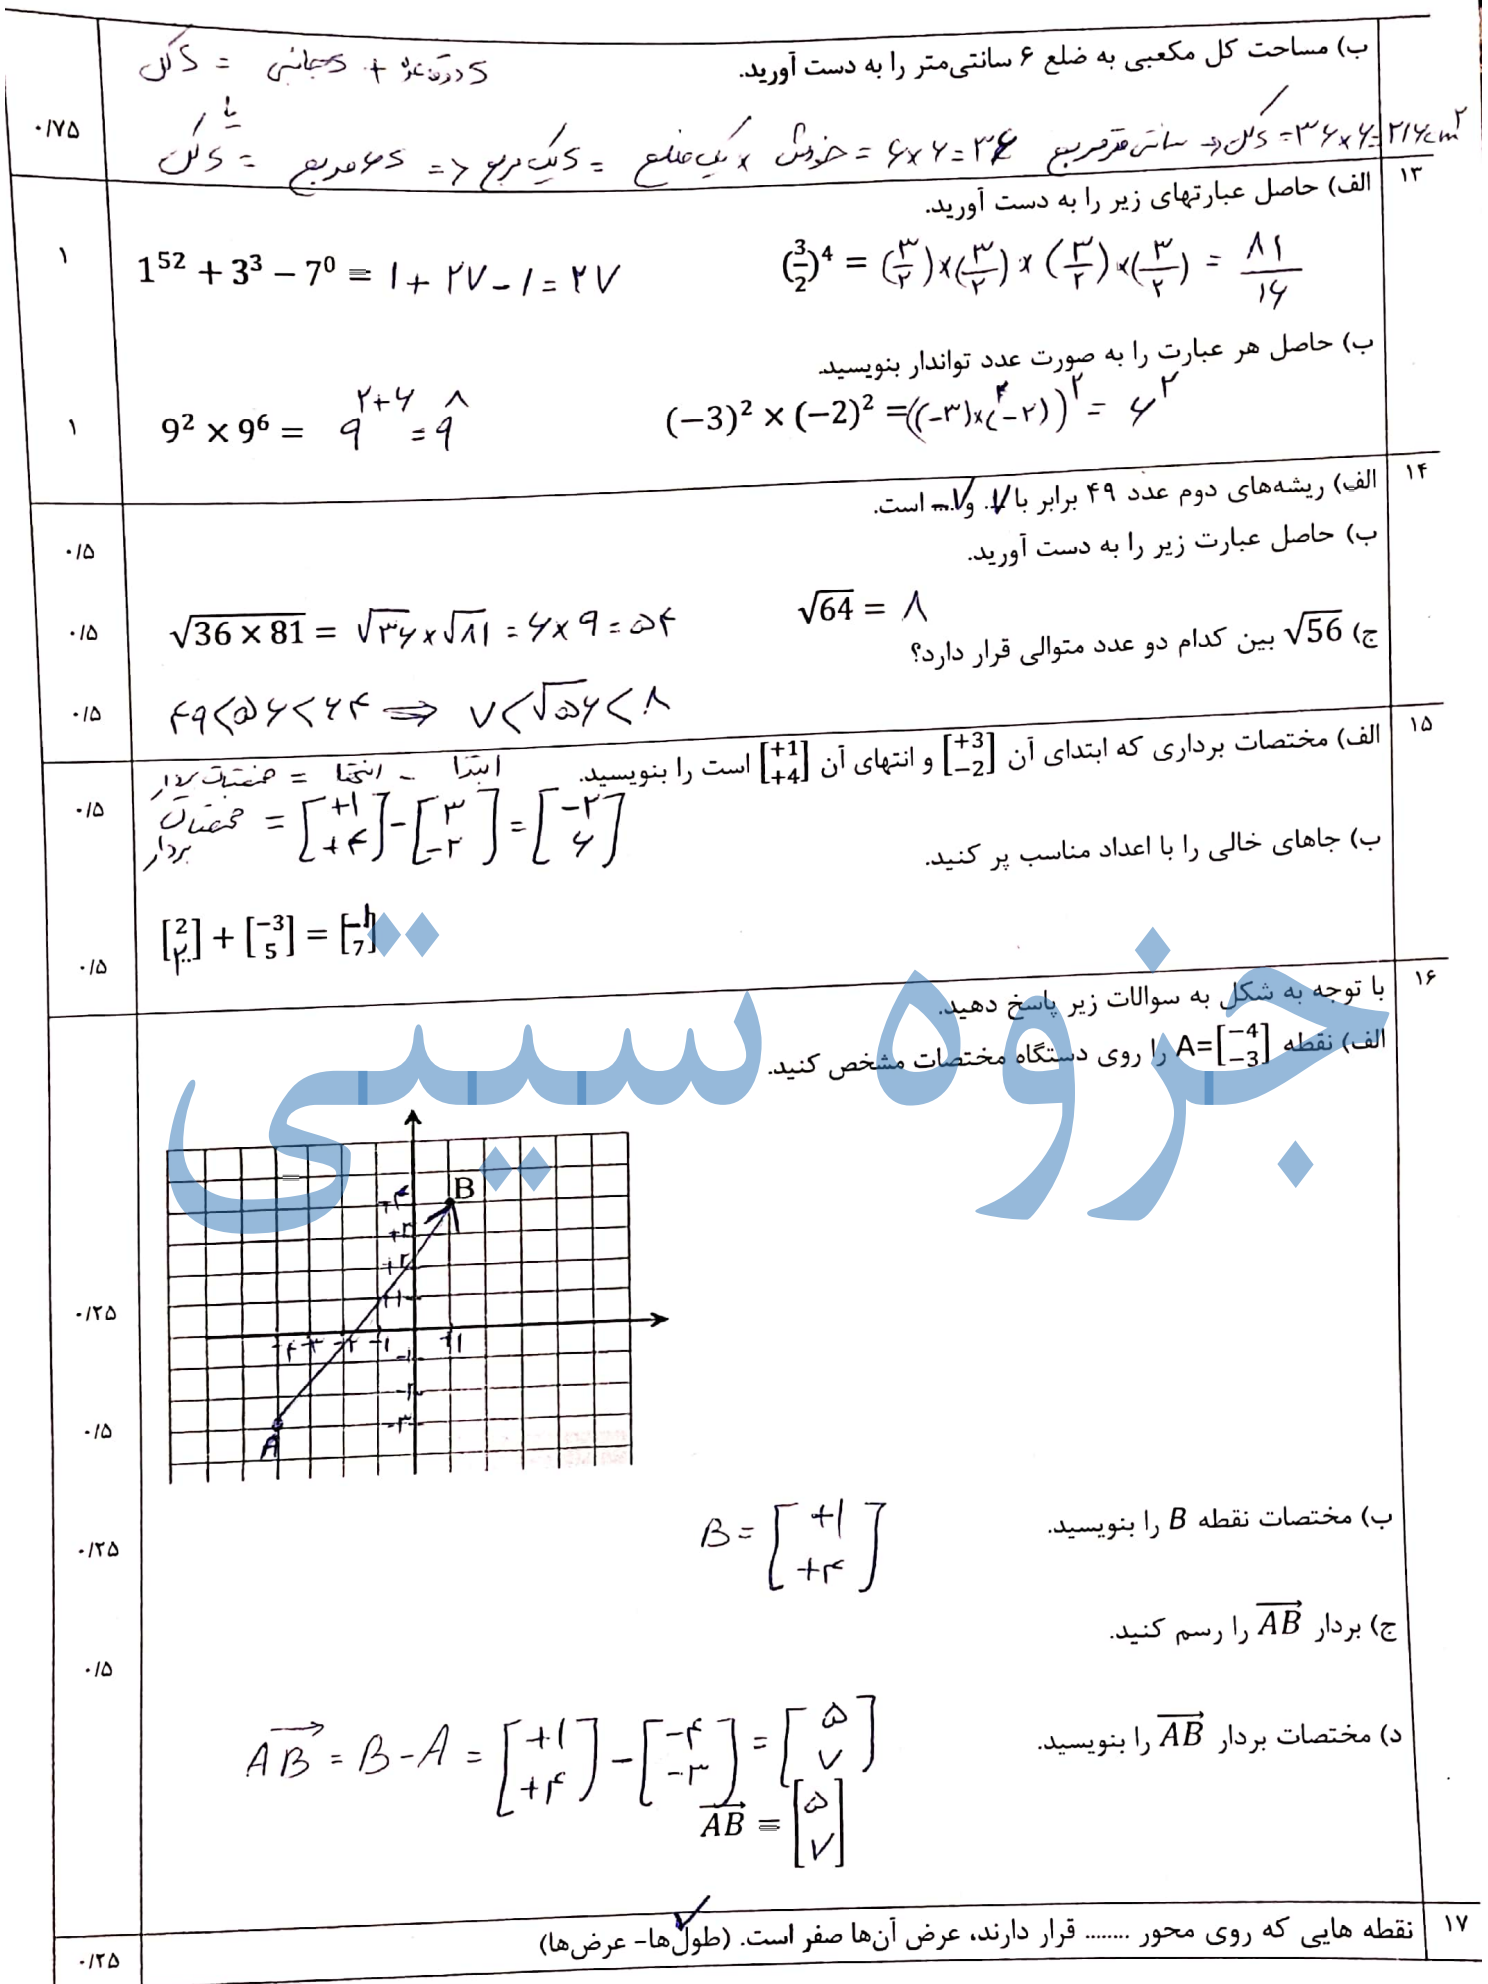 ب) مساحت کل مکعبی به ضلع ۶ سانتی‌متر را به دست آورید.
S کل = S جانبی + S دو قاعده
۰/۷۵
یا
S کل = S ۶ مربع => S یک مربع = یک ضلع × خودش = ۶×۶=۳۶ سانتی متر مربع => S کل = ۳۶×۶=۲۱۶cm^۲
۱۳
الف) حاصل عبارتهای زیر را به دست آورید.
(3/2)^4 = (۳/۲)×(۳/۲)×(۳/۲)×(۳/۲) = ۸۱/۱۶
1^52 + 3^3 − 7^0 = ۱+۲۷−۱=۲۷
۱
ب) حاصل هر عبارت را به صورت عدد تواندار بنویسید.
(−3)^2 × (−2)^2 =((−۳)×(−۲))^۲ = ۶^۲
9^2 × 9^6 = ۹^۲+۶ = ۹^۸
۱
۱۴
الف) ریشه‌های دوم عدد ۴۹ برابر با ۷ و −۷ است.
۰/۵
ب) حاصل عبارت زیر را به دست آورید.
√64 = ۸
√36 × 81 = √۳۶×√۸۱ = ۶×۹=۵۴
۰/۵
ج) √56 بین کدام دو عدد متوالی قرار دارد؟
۴۹<۵۶<۶۴ ⇒ ۷<√۵۶<۸
۰/۵
۱۵
الف) مختصات برداری که ابتدای آن [+3 −2] و انتهای آن [+1 +4] است را بنویسید.
مختصات بردار = انتها − ابتدا
مختصات بردار = [+۱ +۴]−[۳ −۲]=[−۲ ۶]
۰/۵
ب) جاهای خالی را با اعداد مناسب پر کنید.
[2 ۲] + [−3 5] = [−۱ 7]
۰/۵
۱۶
با توجه به شکل به سوالات زیر پاسخ دهید.
الف) نقطه A=[−4 −3] را روی دستگاه مختصات مشخص کنید.
جزوه سیتی
B
+۴
+۳
+۲
+۱
−۴ −۳ −۲ −۱ +۱
−۱
−۲
−۳
A
۰/۲۵
۰/۵
ب) مختصات نقطه B را بنویسید.
B = [+۱ +۴]
۰/۲۵
ج) بردار AB را رسم کنید.
۰/۵
د) مختصات بردار AB را بنویسید.
AB = B − A = [+۱ +۴] − [−۴ −۳] = [۵ ۷]
AB = [۵ ۷]
۱۷
نقطه هایی که روی محور ........ قرار دارند، عرض آن‌ها صفر است. (طول‌ها- عرض‌ها) ✓
۰/۲۵